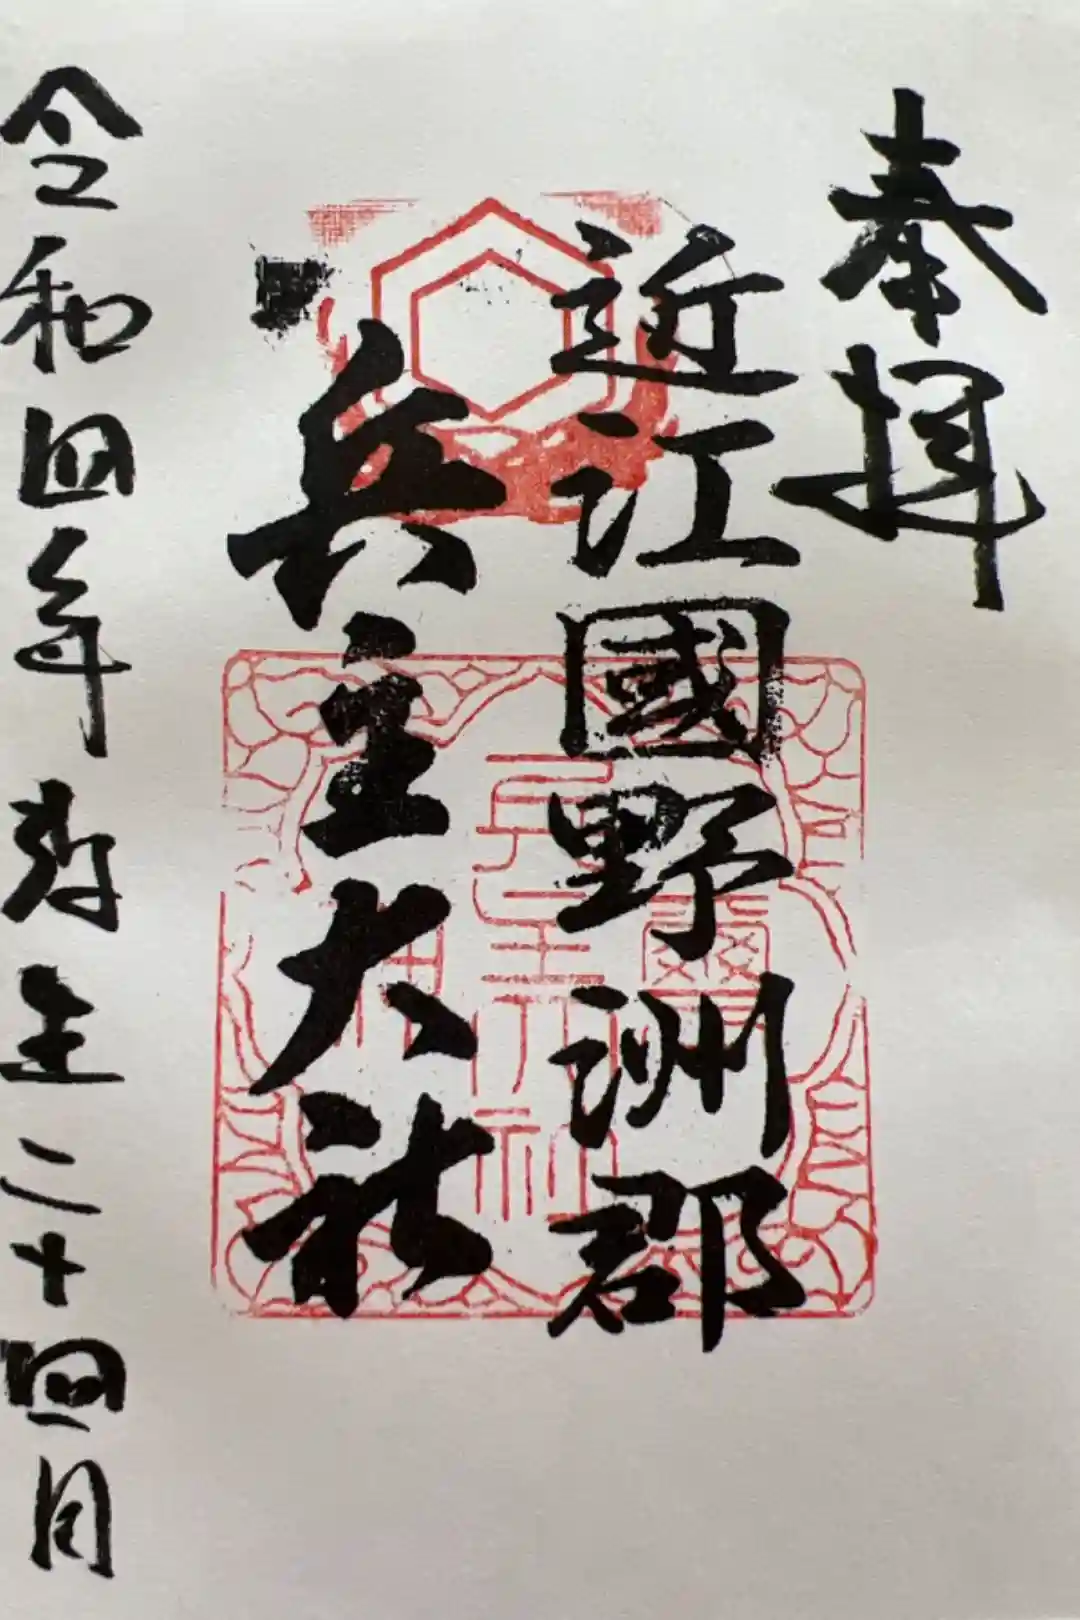 奉拝
近江國野洲郡
兵主大社
令和四年弥生二十四日